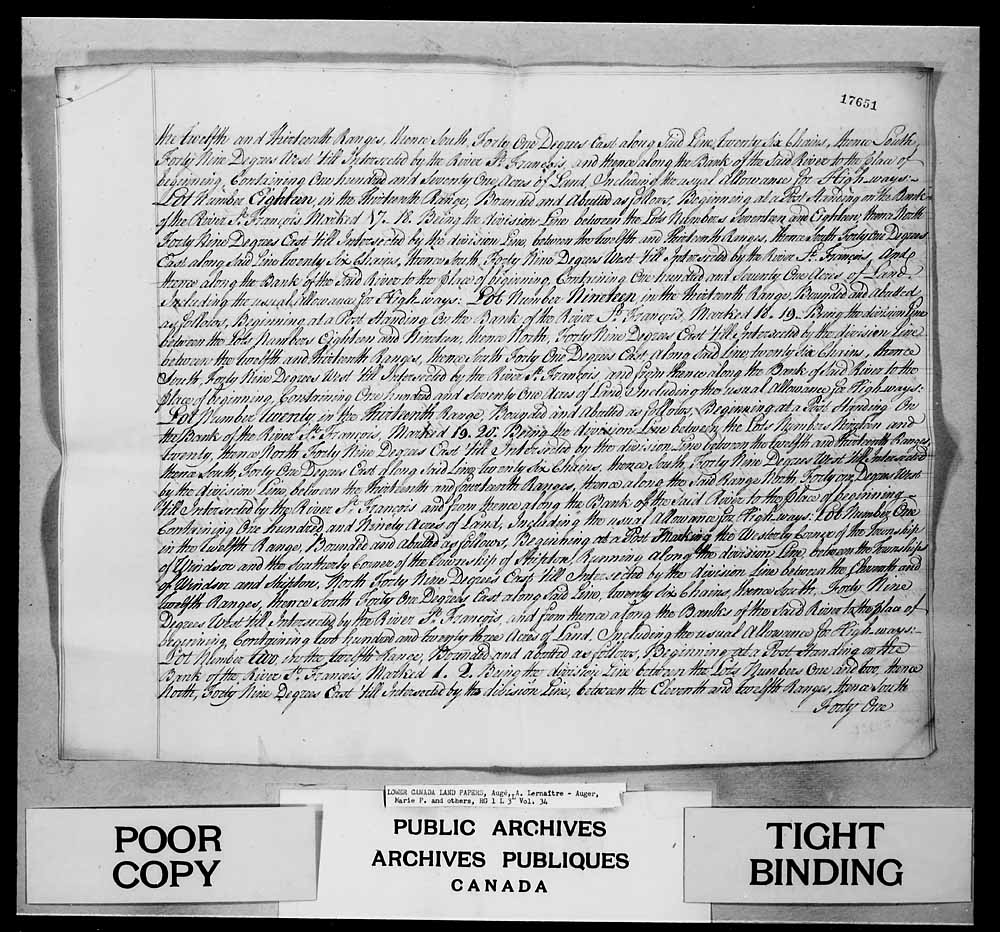 17651
the twelfth and thirteenth Ranges, thence South, Forty One Degrees East along Said Line, twenty Six Chains, thence South,
Forty Nine Degrees West 'till Intersected by the River St. François, and thence along the Bank of the Said River to the place of
beginning, Containing One hundred and Seventy One Acres of Land, Including the usual Allowance for High-ways:-
Lot Number Eighteen, in the thirteenth Range, Bounded and Abutted as follows, Beginning at a Post Standing on the Bank
of the River St. François Marked 17. 18. Being the division Line between the Lots Numbers Seventeen and Eighteen, thence North
Forty Nine Degrees East 'till Intersected by the division Line, between the twelfth and thirteenth Ranges, thence South Forty One Degrees
East along Said Line twenty Six Chains, thence South, Forty Nine Degrees West 'till Intersected by the River St. François, and
thence along the Bank of the Said River to the Place of beginning, Containing One hundred and Seventy One Acres of Land
Including the usual allowance for High-ways: Lot Number Nineteen, in the thirteenth Range, Bounded and abutted
as follows, Beginning at a Post Standing On the Bank of the River St. François, Marked 18. 19. Being the division Line
between the Lots Numbers Eighteen and Nineteen, thence North, Forty Nine Degrees East 'till Intersected by the division Line
between the twelfth and thirteenth Ranges, thence South Forty One Degrees East along Said Line, twenty Six Chains, thence
South, Forty Nine Degrees West 'till Intersected by the River St. François, and from thence along the Bank of Said River to the
place of beginning, Containing One hundred and Seventy One Acres of Land, Including the usual allowance for High-ways:
Lot Number twenty in the thirteenth Range, Bounded and Abutted as follows, Beginning at a Post Standing On
the Bank of the River St. François, Marked 19. 20. Being the division Line between the Lots Numbers Nineteen and
twenty, thence North Forty Nine Degrees East 'till Intersected by the division Line between the twelfth and thirteenth Ranges,
thence South, Forty One Degrees East along Said Line, twenty Six Chains, thence South, Forty Nine Degrees West 'till Intersected
by the division Line between the thirteenth and fourteenth Ranges, thence along the Said Range North Forty one Degrees West
'till Intersected by the River St. François and from thence along the Bank of the Said River to the place of beginning
Containing One hundred and Ninety Acres of Land, Including the usual Allowance for High-ways: Lot Number One
in the twelfth Range, Bounded and abutted as follows, Beginning at a Post Marking the Westerly Corner of the Township
of Windsor and the Southerly Corner of the Township of Shipton, Running along the division Line, between the Townships
of Windsor and Shipton, North Forty Nine Degrees East 'till Intersected by the division Line between the Eleventh and
twelfth Ranges, thence South Forty One Degrees East along Said Line, twenty Six Chains, thence South, Forty Nine
Degrees West 'till Intersected by the River St. François, and from thence along the Banks of the Said River to the place of
beginning Containing two hundred and twenty three Acres of Land, Including the usual Allowance for High-ways:-
Lot Number two, in the twelfth Range, Bounded and abutted as follows, Beginning at a Post Standing on the
Bank of the River St. François, Marked 1. 2. Being the division Line between the Lots Numbers One and two, thence
North, Forty Nine Degrees East 'till Intersected by the division Line, between the Eleventh and twelfth Ranges, thence South
Forty One
LOWER CANADA LAND PAPERS, Augé, A. Lemaître - Auger,
Marie P. and others, RG 1 L 3L Vol. 34
POOR
COPY
PUBLIC ARCHIVES
ARCHIVES PUBLIQUES
CANADA
TIGHT
BINDING